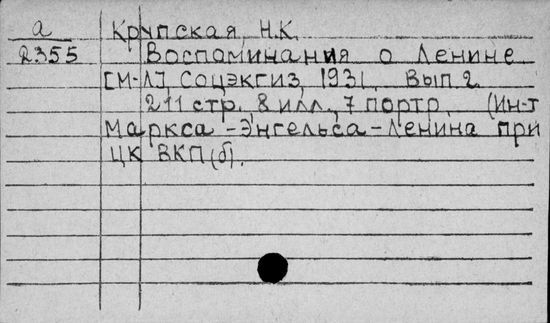 а Крупская, Н.К.
2355 Воспоминания о Ленине
[М-Л], Соцэкгиз, 1931. Вып. 2.
211 стр., 8 илл., 7 портр. (Ин-т
Маркса-Энгельса-Ленина при
ЦК ВКП(б).